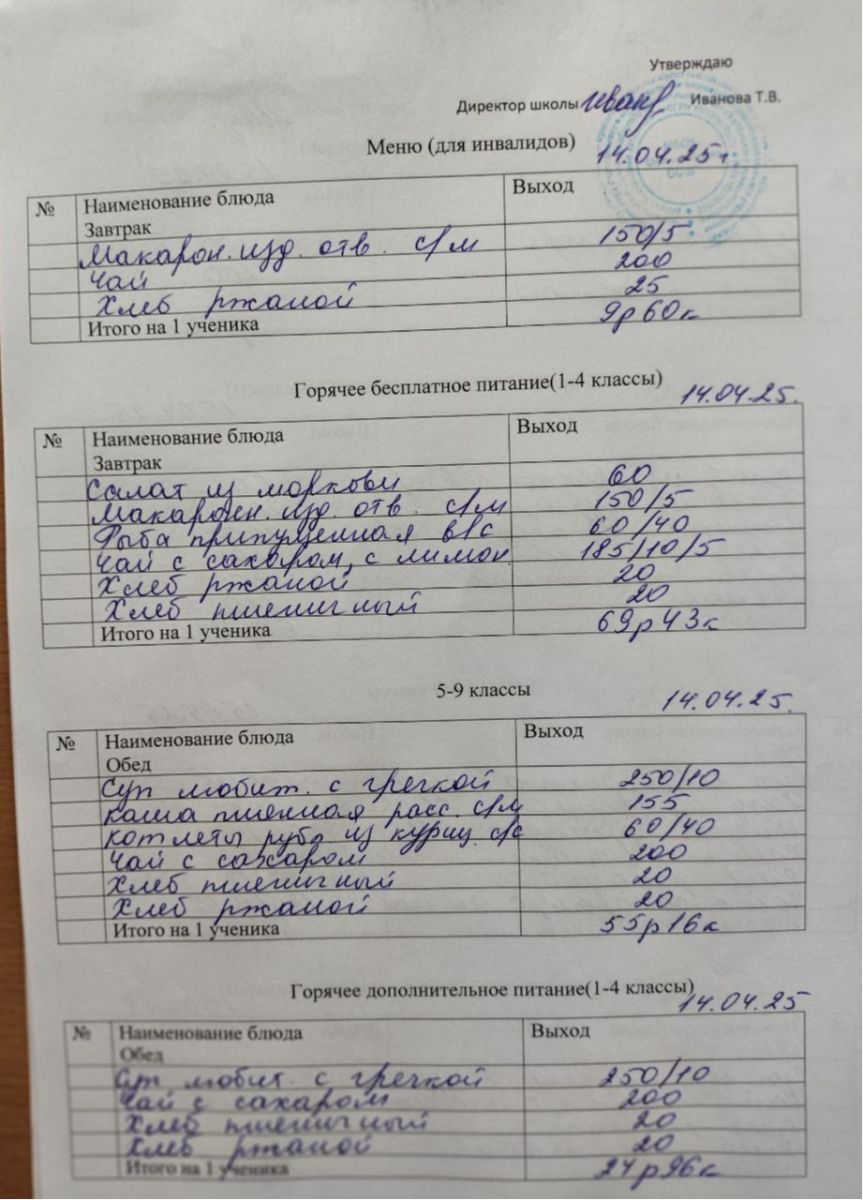 Утверждаю
Директор школы Иванова Т.В.
Меню (для инвалидов) 14.04.25г
№ Наименование блюда Выход
Завтрак
Макарон. изд. отв. с/м 150/5
Чай 200
Хлеб ржаной 25
Итого на 1 ученика 9р60к
Горячее бесплатное питание(1-4 классы) 14.04.25.
№ Наименование блюда Выход
Завтрак
Салат из моркови 60
Макарон. изд. отв. с/м 150/5
Рыба припущенная в/с 60/40
Чай с сахаром, с лимон. 185/10/5
Хлеб ржаной 20
Хлеб пшеничный 20
Итого на 1 ученика 69р43к
5-9 классы 14.04.25.
№ Наименование блюда Выход
Обед
Суп любит. с гречкой 250/10
Каша пшенная расс. с/м 155
Котлеты руб. из куриц. с/с 60/40
Чай с сахаром 200
Хлеб пшеничный 20
Хлеб ржаной 20
Итого на 1 ученика 55р16к
Горячее дополнительное питание(1-4 классы) 14.04.25
№ Наименование блюда Выход
Обед
Суп любит. с гречкой 250/10
Чай с сахаром 200
Хлеб пшеничный 20
Хлеб ржаной 20
Итого на 1 ученика 24р96к